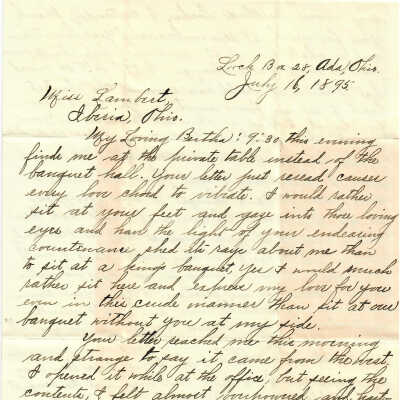 Lock Box 28, Ada, Ohio.
July 16, 1895
Miss Lambert,
Iberia, Ohio.
My Loving Bertha: 9:30 this evening
finds me at the private table instead of the
banquet hall. Your letter just reread causes
every love chord to vibrate. I would rather
sit at your feet and gaze into those loving
eyes and have the light of your endearing
countenance shed its rays about me than
to sit at a kings banquet, yes I would much
rather sit here and express my love for you
even in this crude manner than sit at our
banquet without you at my side.
Your letter reached me this morning
and strange to say it came from the west.
I opened it while at the office, but seeing the
contents, I felt almost and